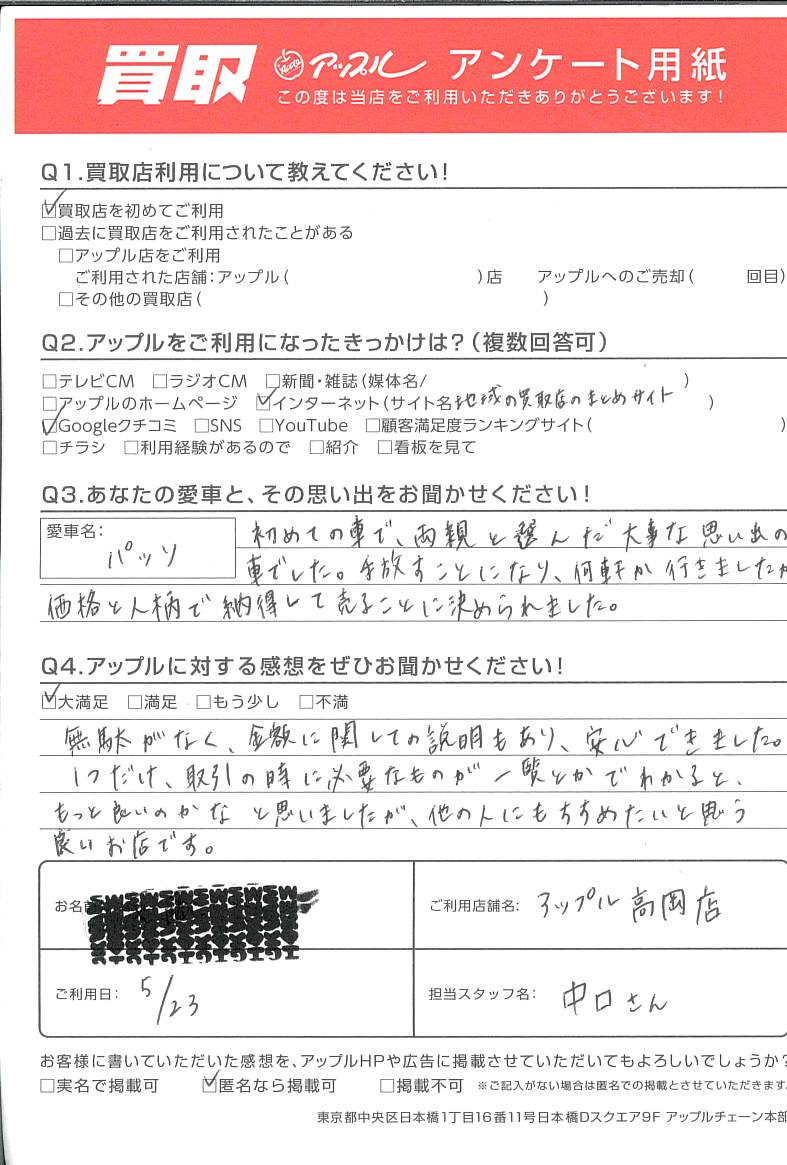 買取 Apple アップル アンケート用紙
この度は当店をご利用いただきありがとうございます!
Q1.買取店利用について教えてください!
☑買取店を初めてご利用
□過去に買取店をご利用されたことがある
□アップル店をご利用
ご利用された店舗:アップル( )店 アップルへのご売却( 回目)
□その他の買取店( )
Q2.アップルをご利用になったきっかけは?(複数回答可)
□テレビCM □ラジオCM □新聞・雑誌(媒体名/ )
□アップルのホームページ ☑インターネット(サイト名地域の買取店のまとめサイト )
☑Googleクチコミ □SNS □YouTube □顧客満足度ランキングサイト( )
□チラシ □利用経験があるので □紹介 □看板を見て
Q3.あなたの愛車と、その思い出をお聞かせください!
愛車名: パッソ
初めての車で、両親と選んだ大事な思い出の
車でした。手放すことになり、何軒か行きましたが
価格と人柄で納得して売ることに決められました。
Q4.アップルに対する感想をぜひお聞かせください!
☑大満足 □満足 □もう少し □不満
無駄がなく、金額に関しての説明もあり、安心できました。
1つだけ、取引の時に必要なものが一覧とかでわかると、
もっと良いのかなと思いましたが、他の人にもすすめたいと思う
良いお店です。
お名前
ご利用店舗名: アップル高岡店
ご利用日: 5/23
担当スタッフ名: 中口さん
お客様に書いていただいた感想を、アップルHPや広告に掲載させていただいてもよろしいでしょうか?
□実名で掲載可 ☑匿名なら掲載可 □掲載不可 ※ご記入がない場合は匿名での掲載とさせていただきます。
東京都中央区日本橋1丁目16番11号日本橋Dスクエア9F アップルチェーン本部